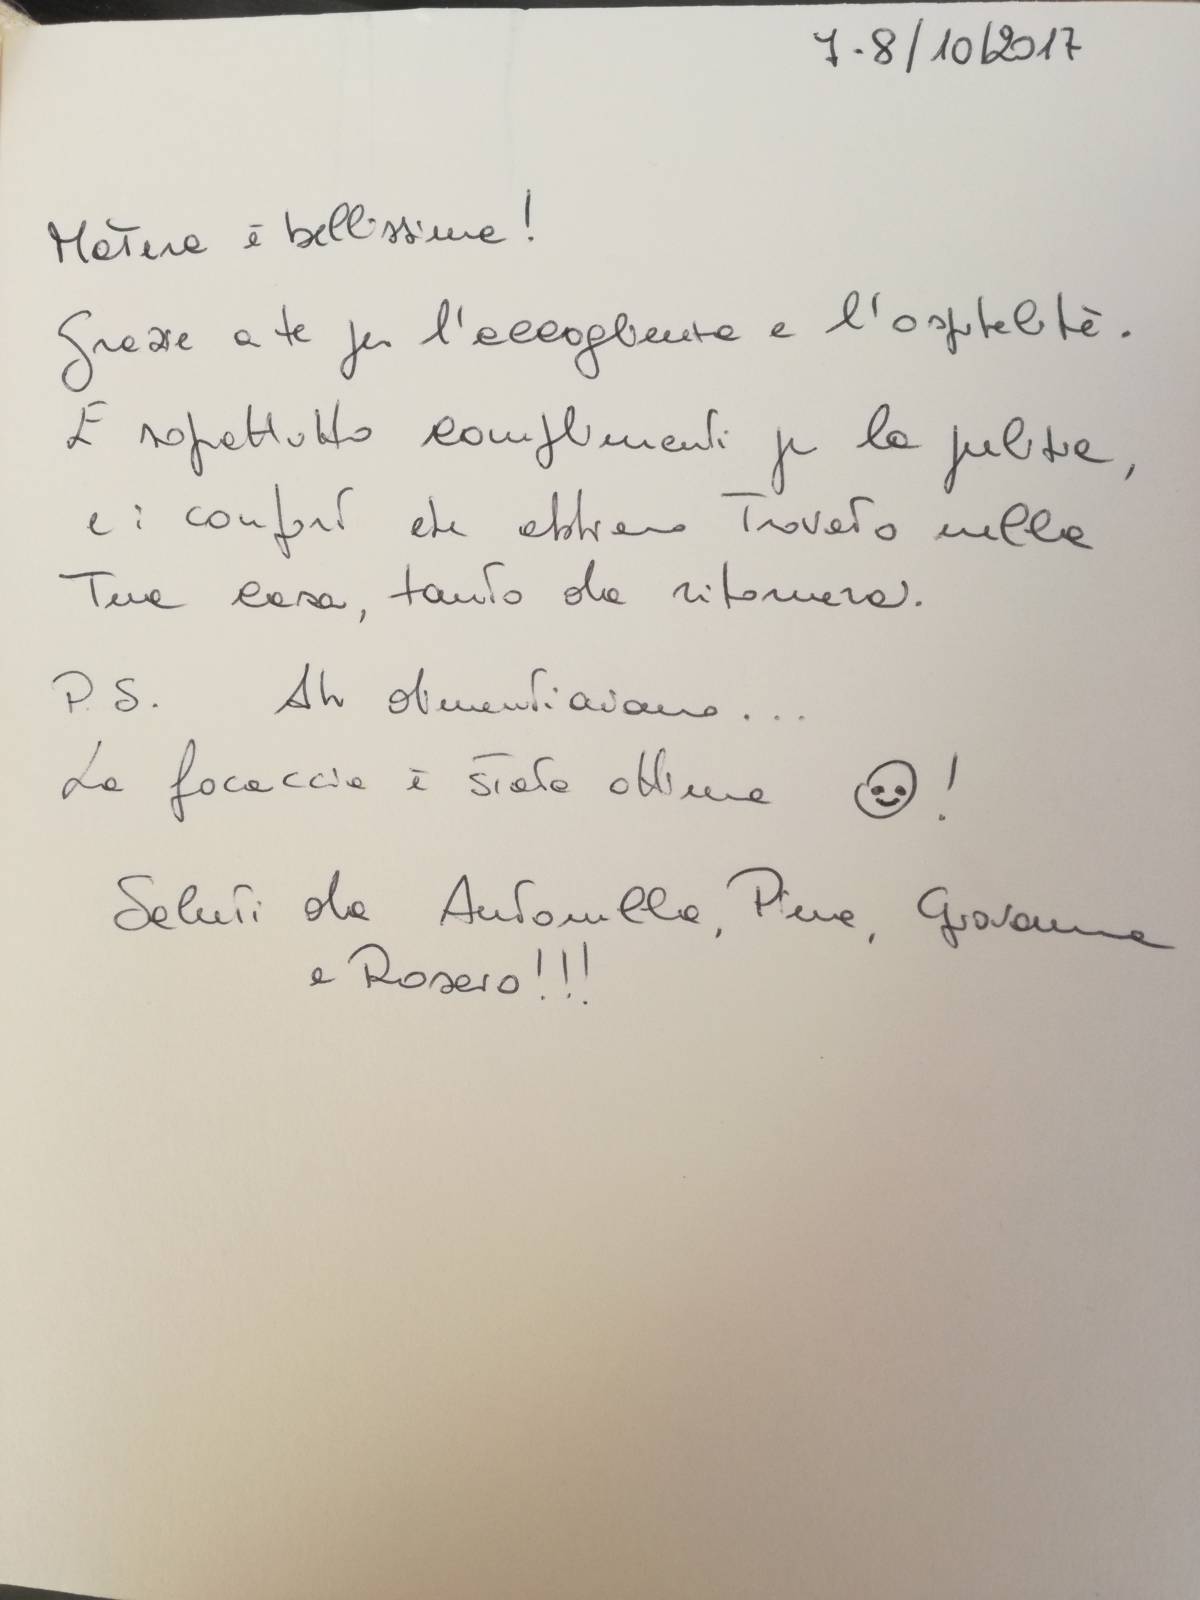 7-8/10/2017
Matera è bellissima!
Grazie a te per l'accoglienza e l'ospitalità.
E soprattutto complimenti per la pulizia,
e i confort che abbiamo Trovato nella
Tua casa, tanto da ritornarci.
P.S. Ah dimenticavamo...
La focaccia è stata ottima ☺!
Saluti da Antonella, Pina, Giovanna
e Rosario!!!